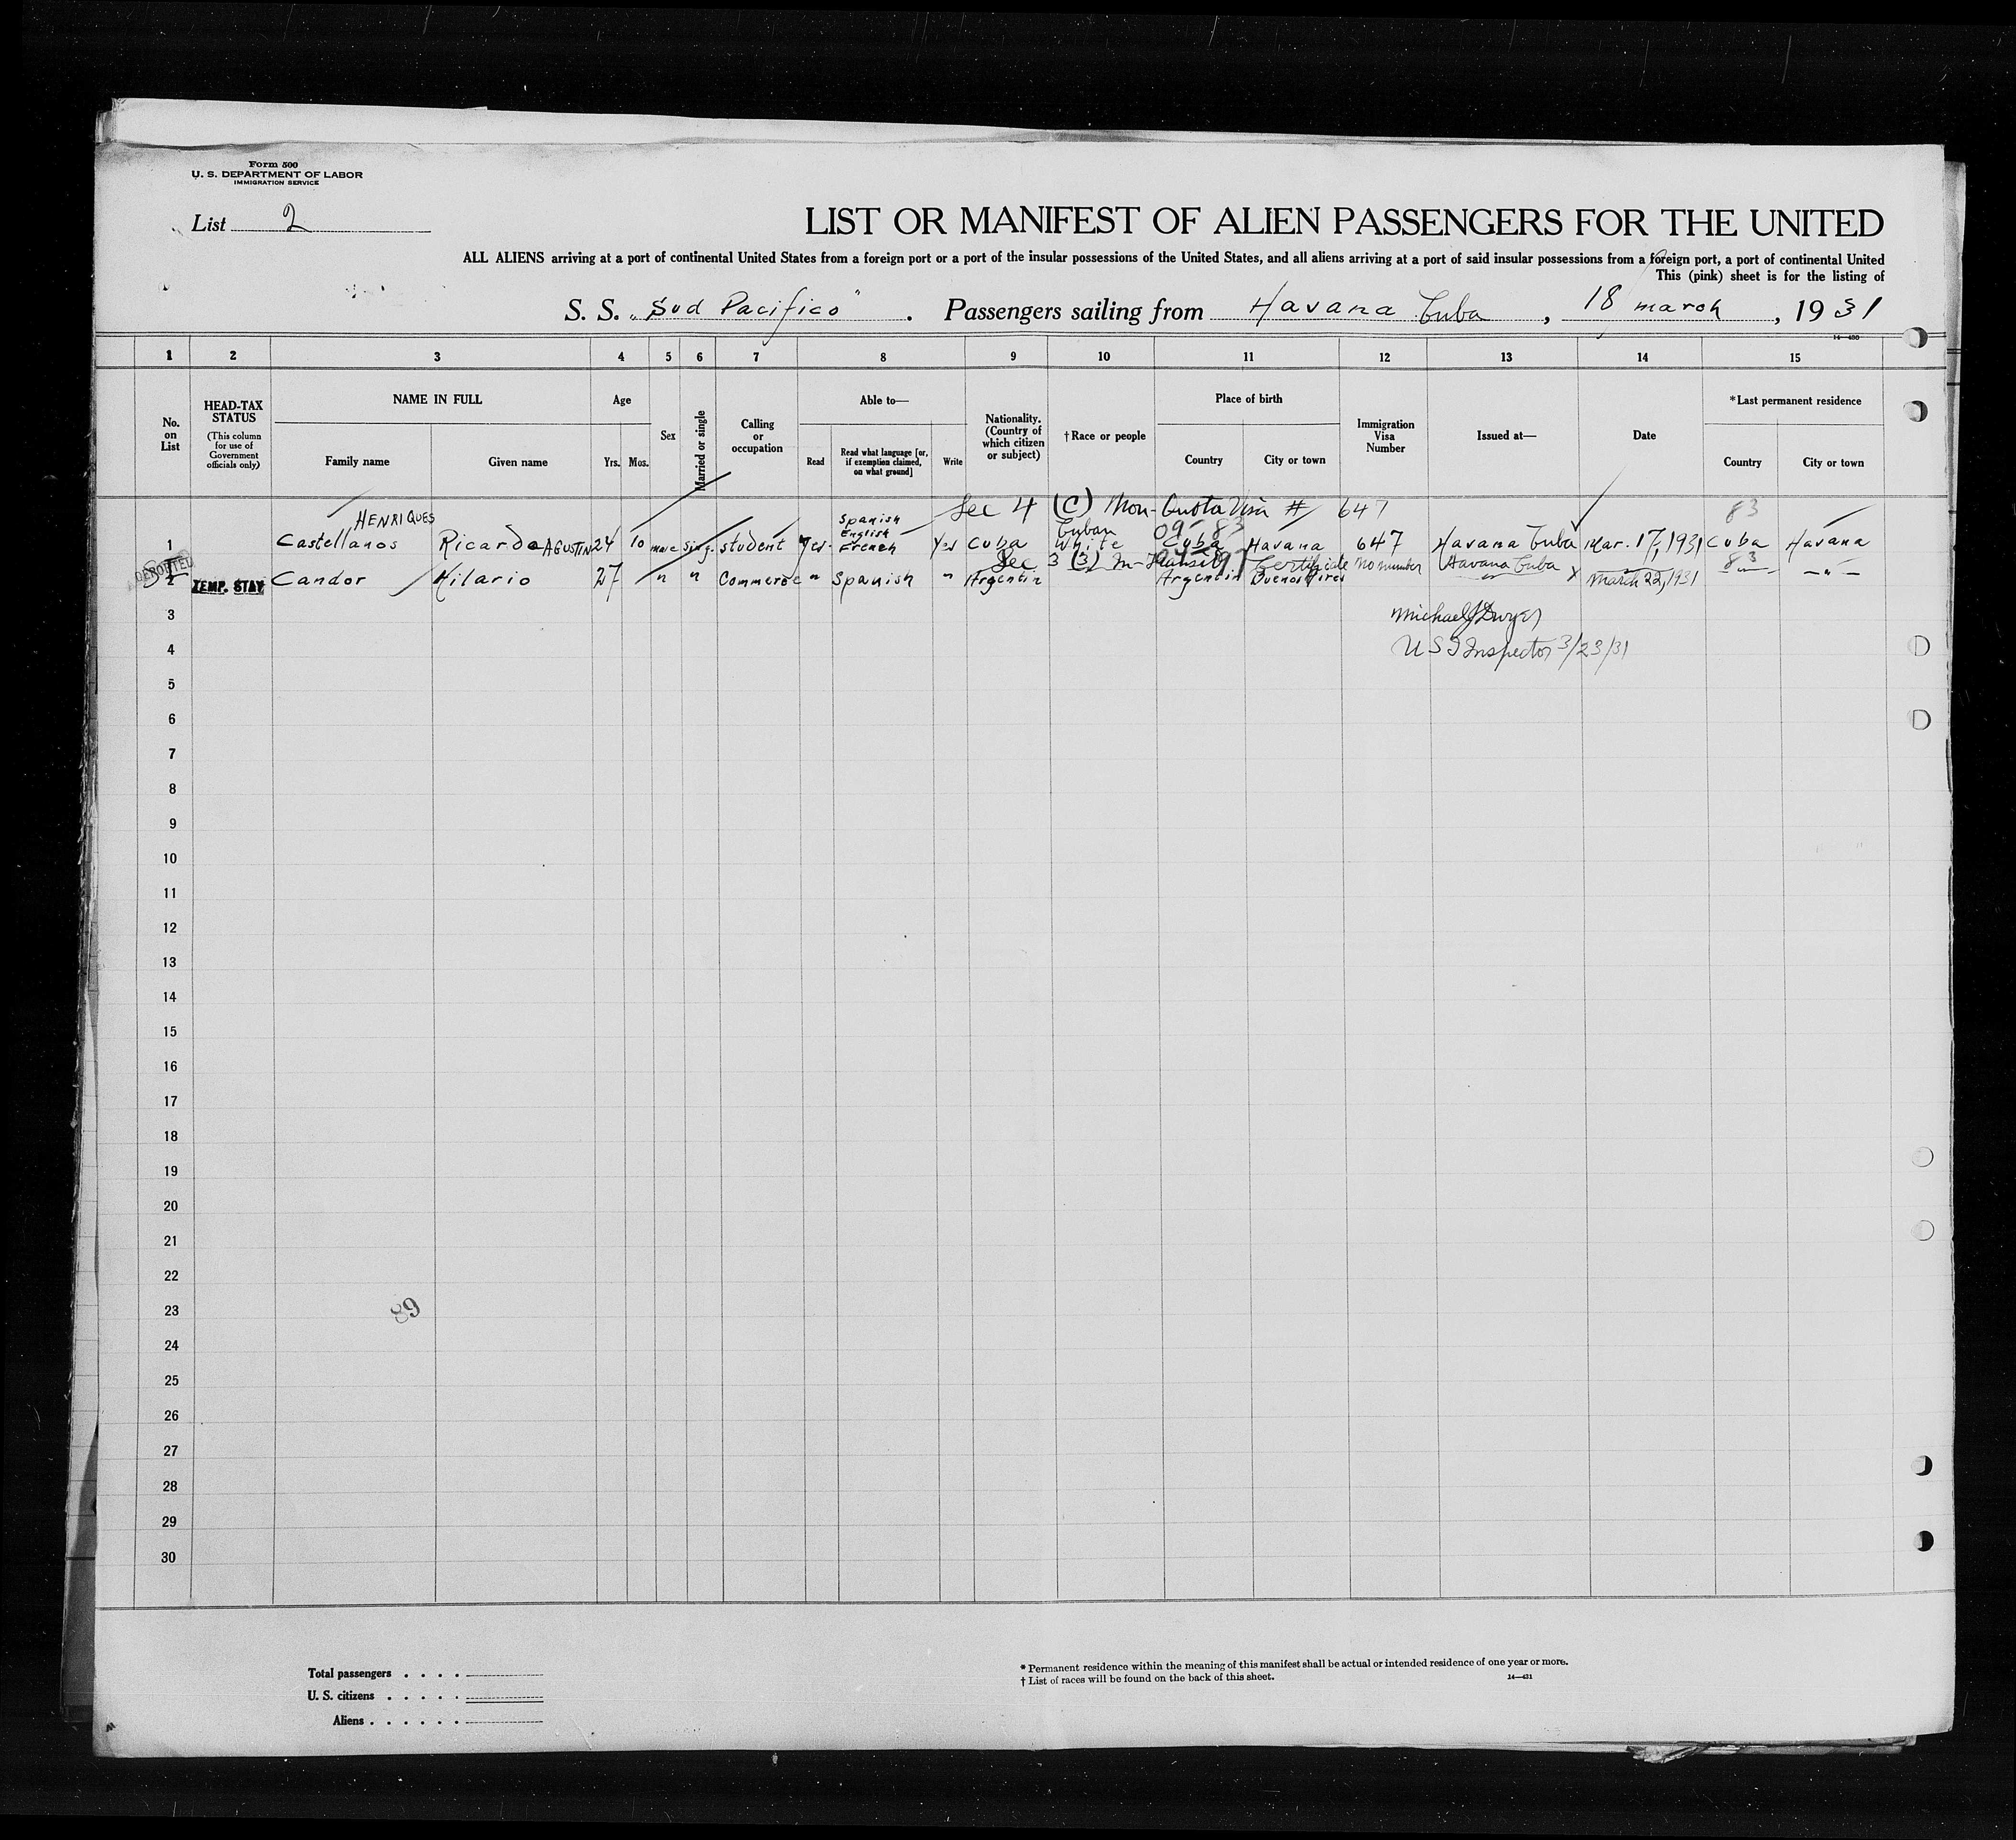 Form 500
U. S. DEPARTMENT OF LABOR
IMMIGRATION SERVICE
List 2
LIST OR MANIFEST OF ALIEN PASSENGERS FOR THE UNITED
ALL ALIENS arriving at a port of continental United States from a foreign port or a port of the insular possessions of the United States, and all aliens arriving at a port of said insular possessions from a foreign port, a port of continental United
This (pink) sheet is for the listing of
S. S. "Sud Pacifico". Passengers sailing from Havana Cuba, 18 march, 1931
14—430
1 2 3 4 5 6 7 8 9 10 11 12 13 14 15
No. on List
HEAD-TAX STATUS (This column for use of Government officials only)
NAME IN FULL
Family name Given name
Age
Yrs. Mos.
Sex
Married or single
Calling or occupation
Able to—
Read Read what language [or, if exemption claimed, on what ground] Write
Nationality. (Country of which citizen or subject)
†Race or people
Place of birth
Country City or town
Immigration Visa Number
Issued at—
Date
*Last permanent residence
Country City or town
Sec 4 (C) Non-Quota Visa # 647
83
HENRIQUES
Spanish
English
Cuban
09-83
1 Castellanos Ricardo AGUSTIN 24 10 male sing. student Yes- French Yes Cuba White Cuba Havana 647 Havana Cuba Mar. 17, 1931 Cuba Havana
DEPORTED
Sec 3 (3) In-Transit 97 Certificate no number Havana Cuba 83
2 TEMP. STAY Candor Hilario 27 " " Commerce " Spanish " Argentin Argentin Buenos Aires March 22, 1931 -"- -"-
3 Michael J Dwyer
4 U S I Inspector 3/23/31
5
6
7
8
9
10
11
12
13
14
15
16
17
18
19
20
21
22
23 89
24
25
26
27
28
29
30
Total passengers . . . .
U. S. citizens . . . . .
Aliens . . . . . .
* Permanent residence within the meaning of this manifest shall be actual or intended residence of one year or more.
† List of races will be found on the back of this sheet. 14—431